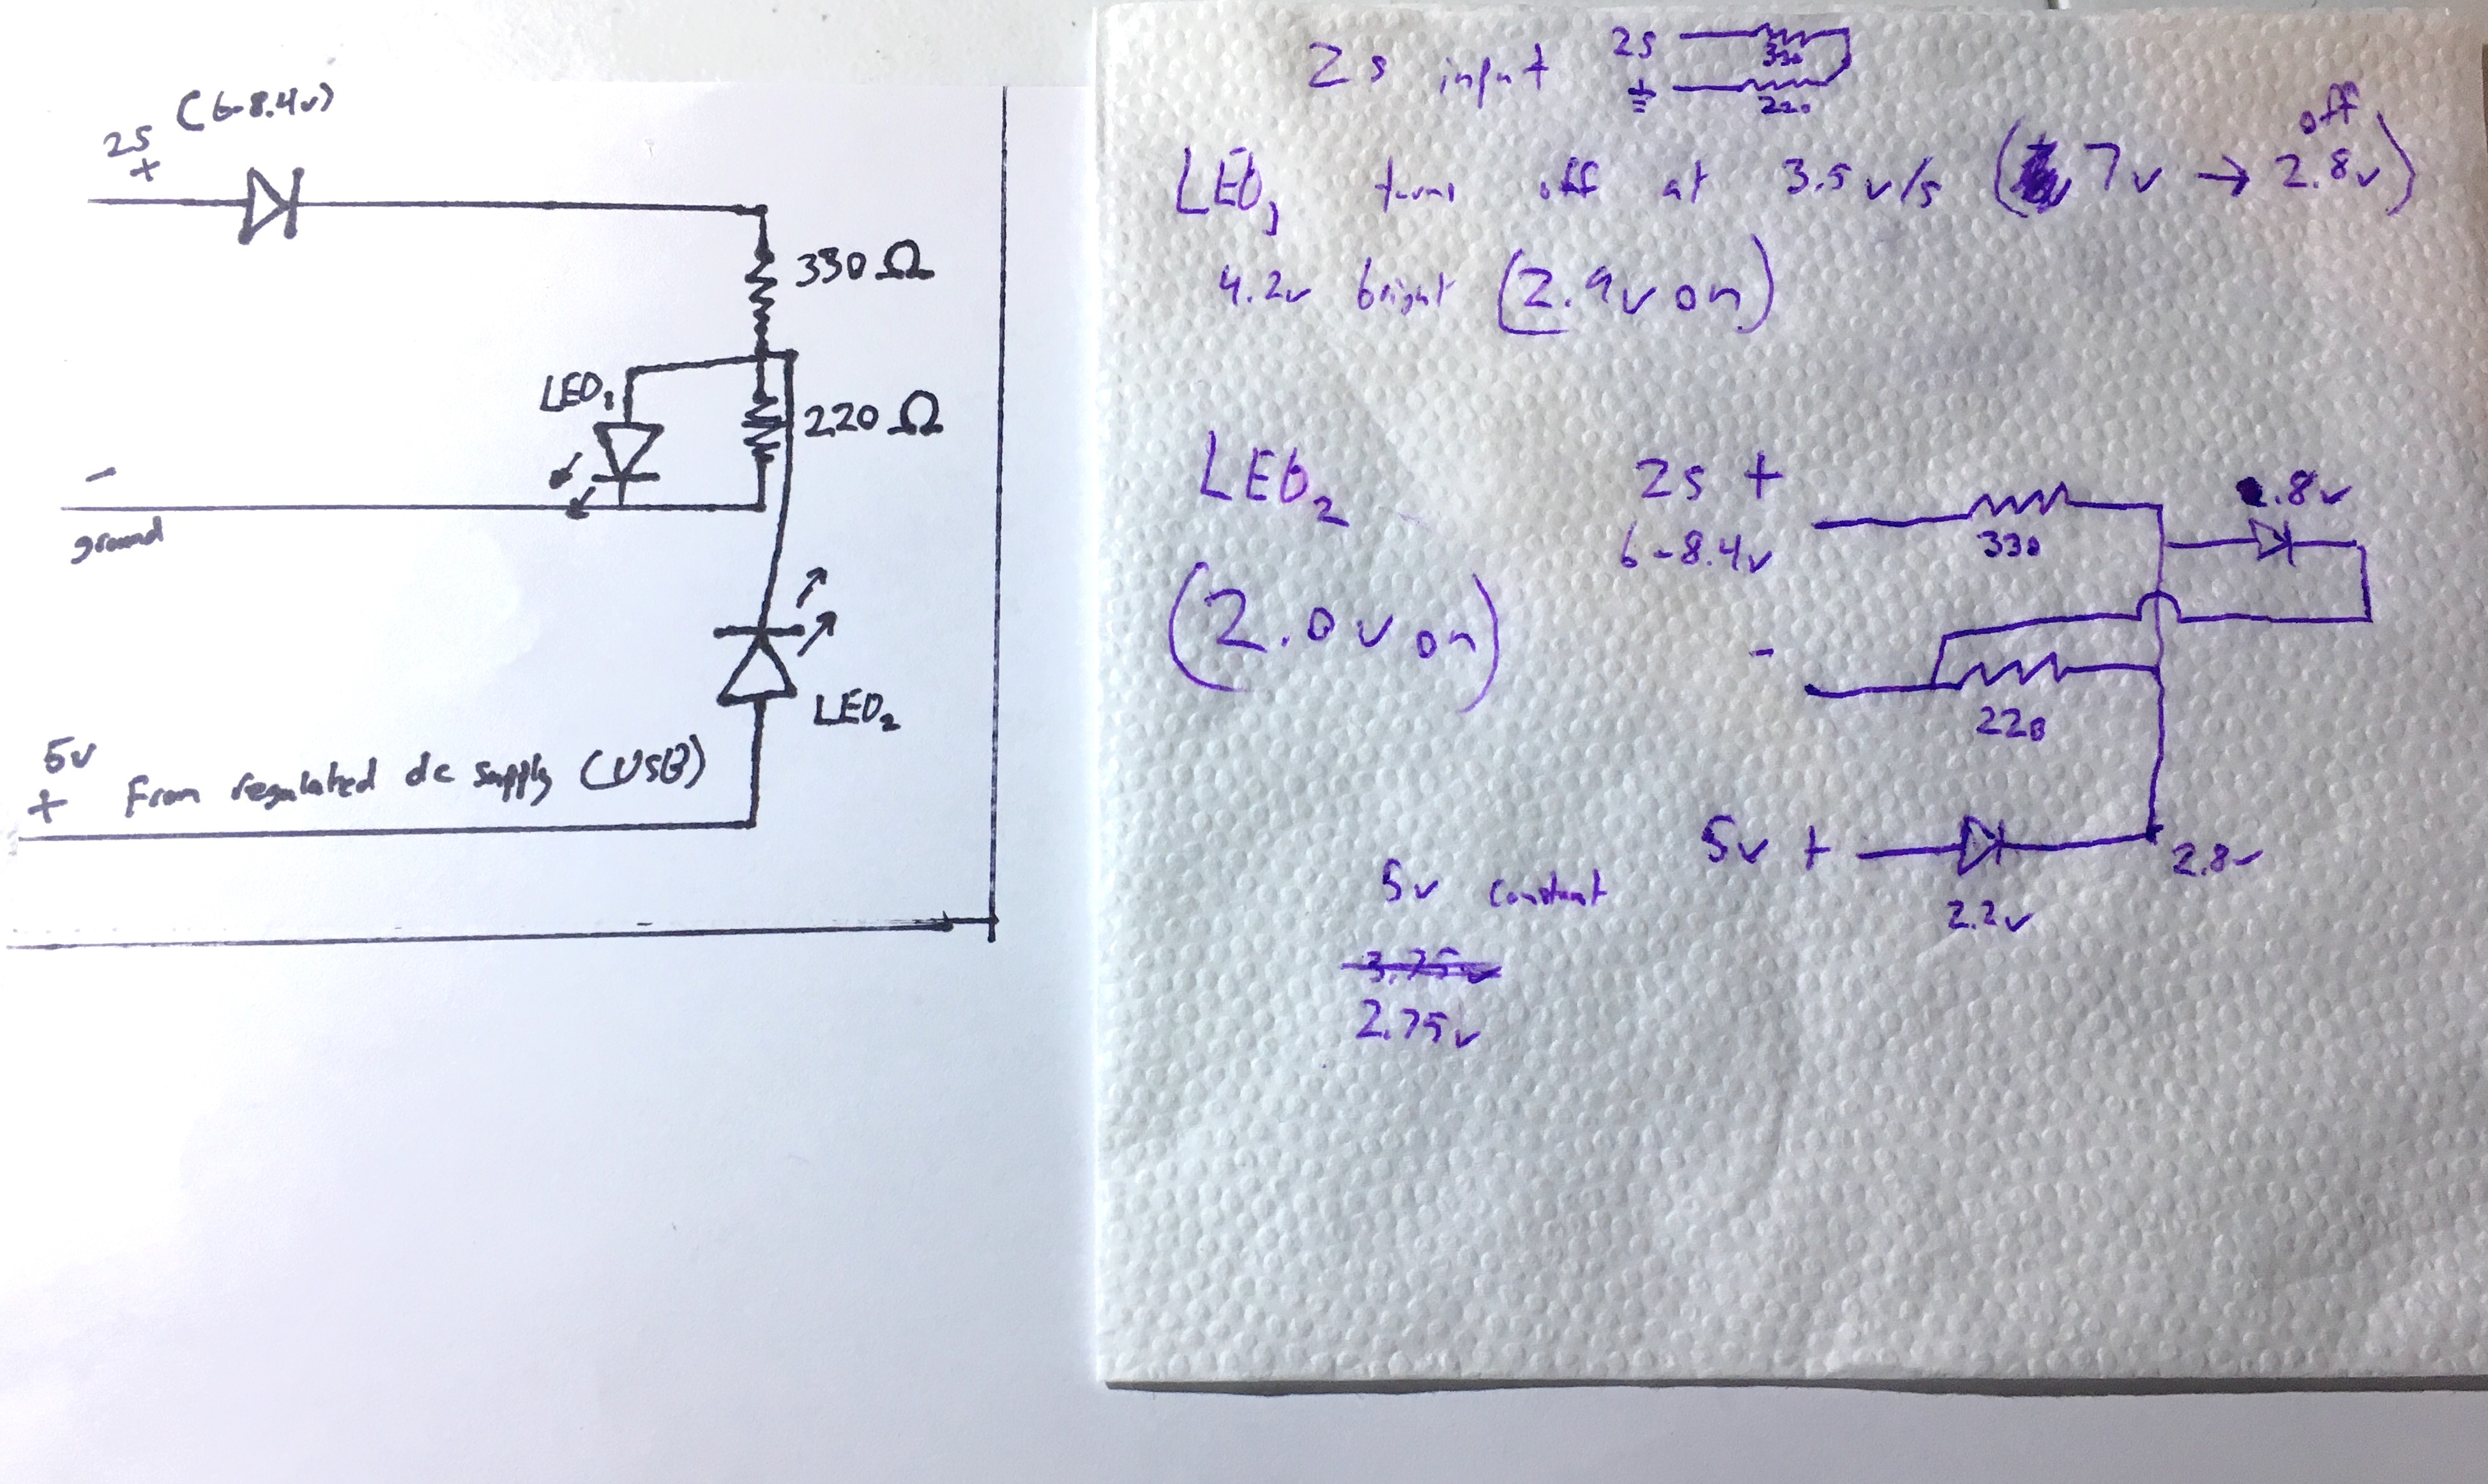 2s (6-8.4v)
+
330 Ω
LED1
220 Ω
-
ground
LED2
5v
+ From regulated dc supply (USB)
2s input 2s 330
220
off
LED1 turns off at 3.5v/s (7v → 2.8v)
4.2v bright (2.9v on)
LED2 2s + .8v
6-8.4v 330
(2.0v on)
-
220
5v + 2.8v
2.2v
5v constant
3.75v
2.75v